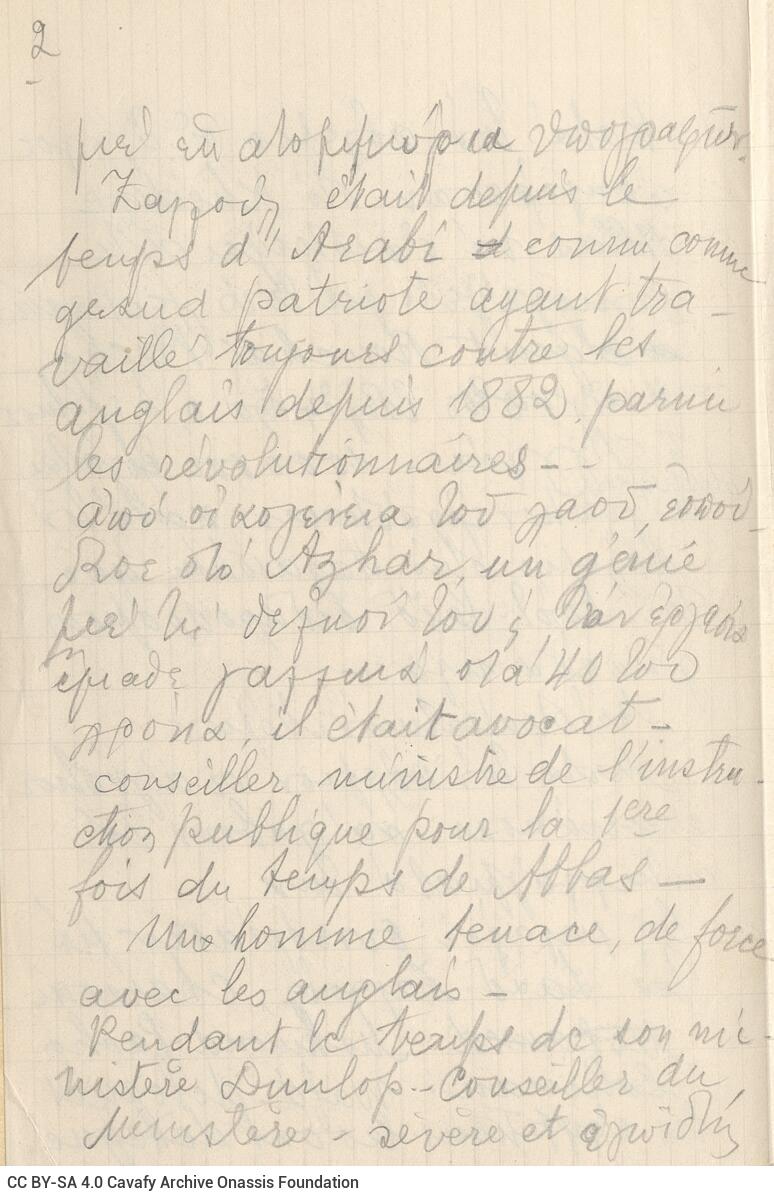 2
μὲ ἓν ὑπογραφῶν.
Ζαγλοὺλ était depuis le
temps d'Arabi connu comme
grand patriote ayant tra-
vaillé toujours contre les
anglais depuis 1882, parmi
les révolutionnaires - -
ἀπό οἰκογένεια τοῦ λαοῦ, ἐσπού-
δασε στὸ Azhar, un génie
μὲ τὴ θέλησί του & τὴν ἐργασία
ἔμαθε γαλλικὰ στὰ 40 του
χρόνια, il était avocat -
conseiller, ministre de l'instru-
ction publique pour la 1ere
fois du temps de Abbas —
Une homme tenace, de force
avec les anglais -
Pendant le temps de son mi-
nistère Dunlop - Conseiller du
Ministère - sévère et
CC BY-SA 4.0 Cavafy Archive Onassis Foundation